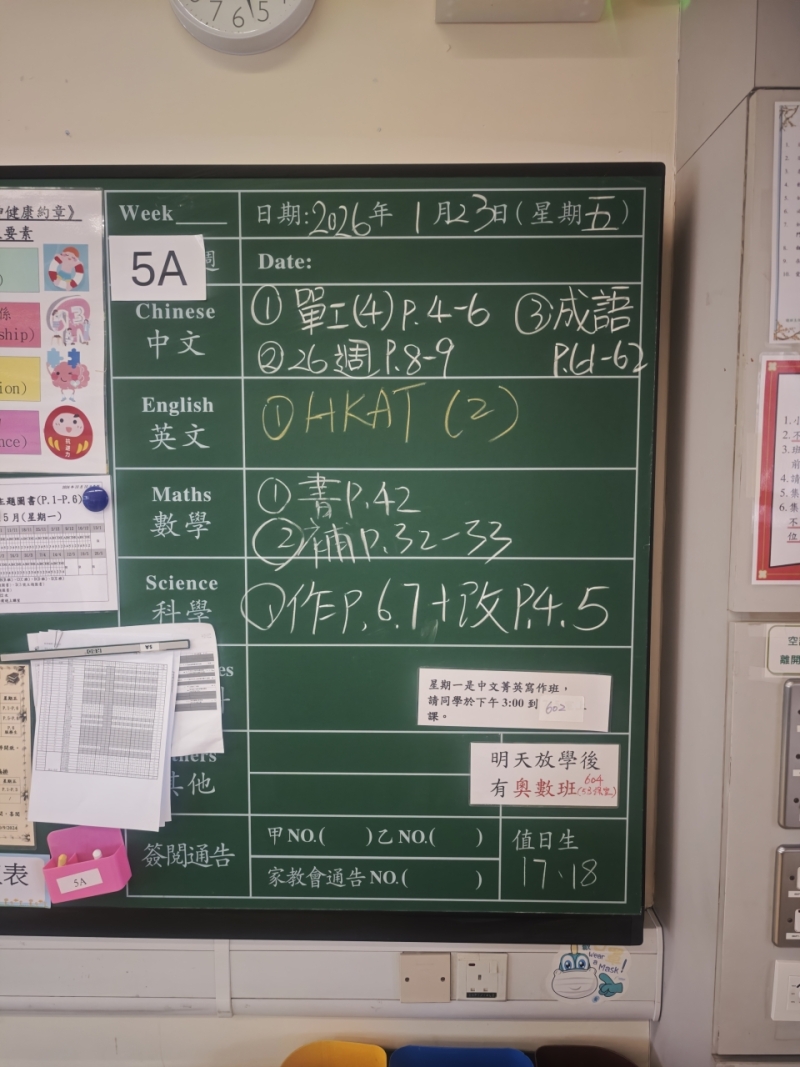 7 6 5
健康約章》
要素
ship)
ion)
nce)
主題圖書(P.1-P.6)
5月(星期一)
Week____
日期:2026年 1月23日(星期五)
5A
週
Date:
Chinese
中文
① 單工(4) P.4-6 ③成語
② 26週 P.8-9 P.61-62
English
英文
① HKAT (2)
Maths
數學
① 書P.42
② 補P.32-33
Science
科學
① 作P.6.7+改P.4.5
es
星期一是中文菁英寫作班，
請同學於下午 3:00 到 602
課。
hers
其他
明天放學後
有奧數班 604
簽閱通告
甲NO.( )乙NO.( )
家教會通告NO.( )
值日生
17、18
表
5A
wear
a
Mask!
1. 小
2. 不
3. 班
前
4. 請
5. 集
6. 集
不
位
空
離開